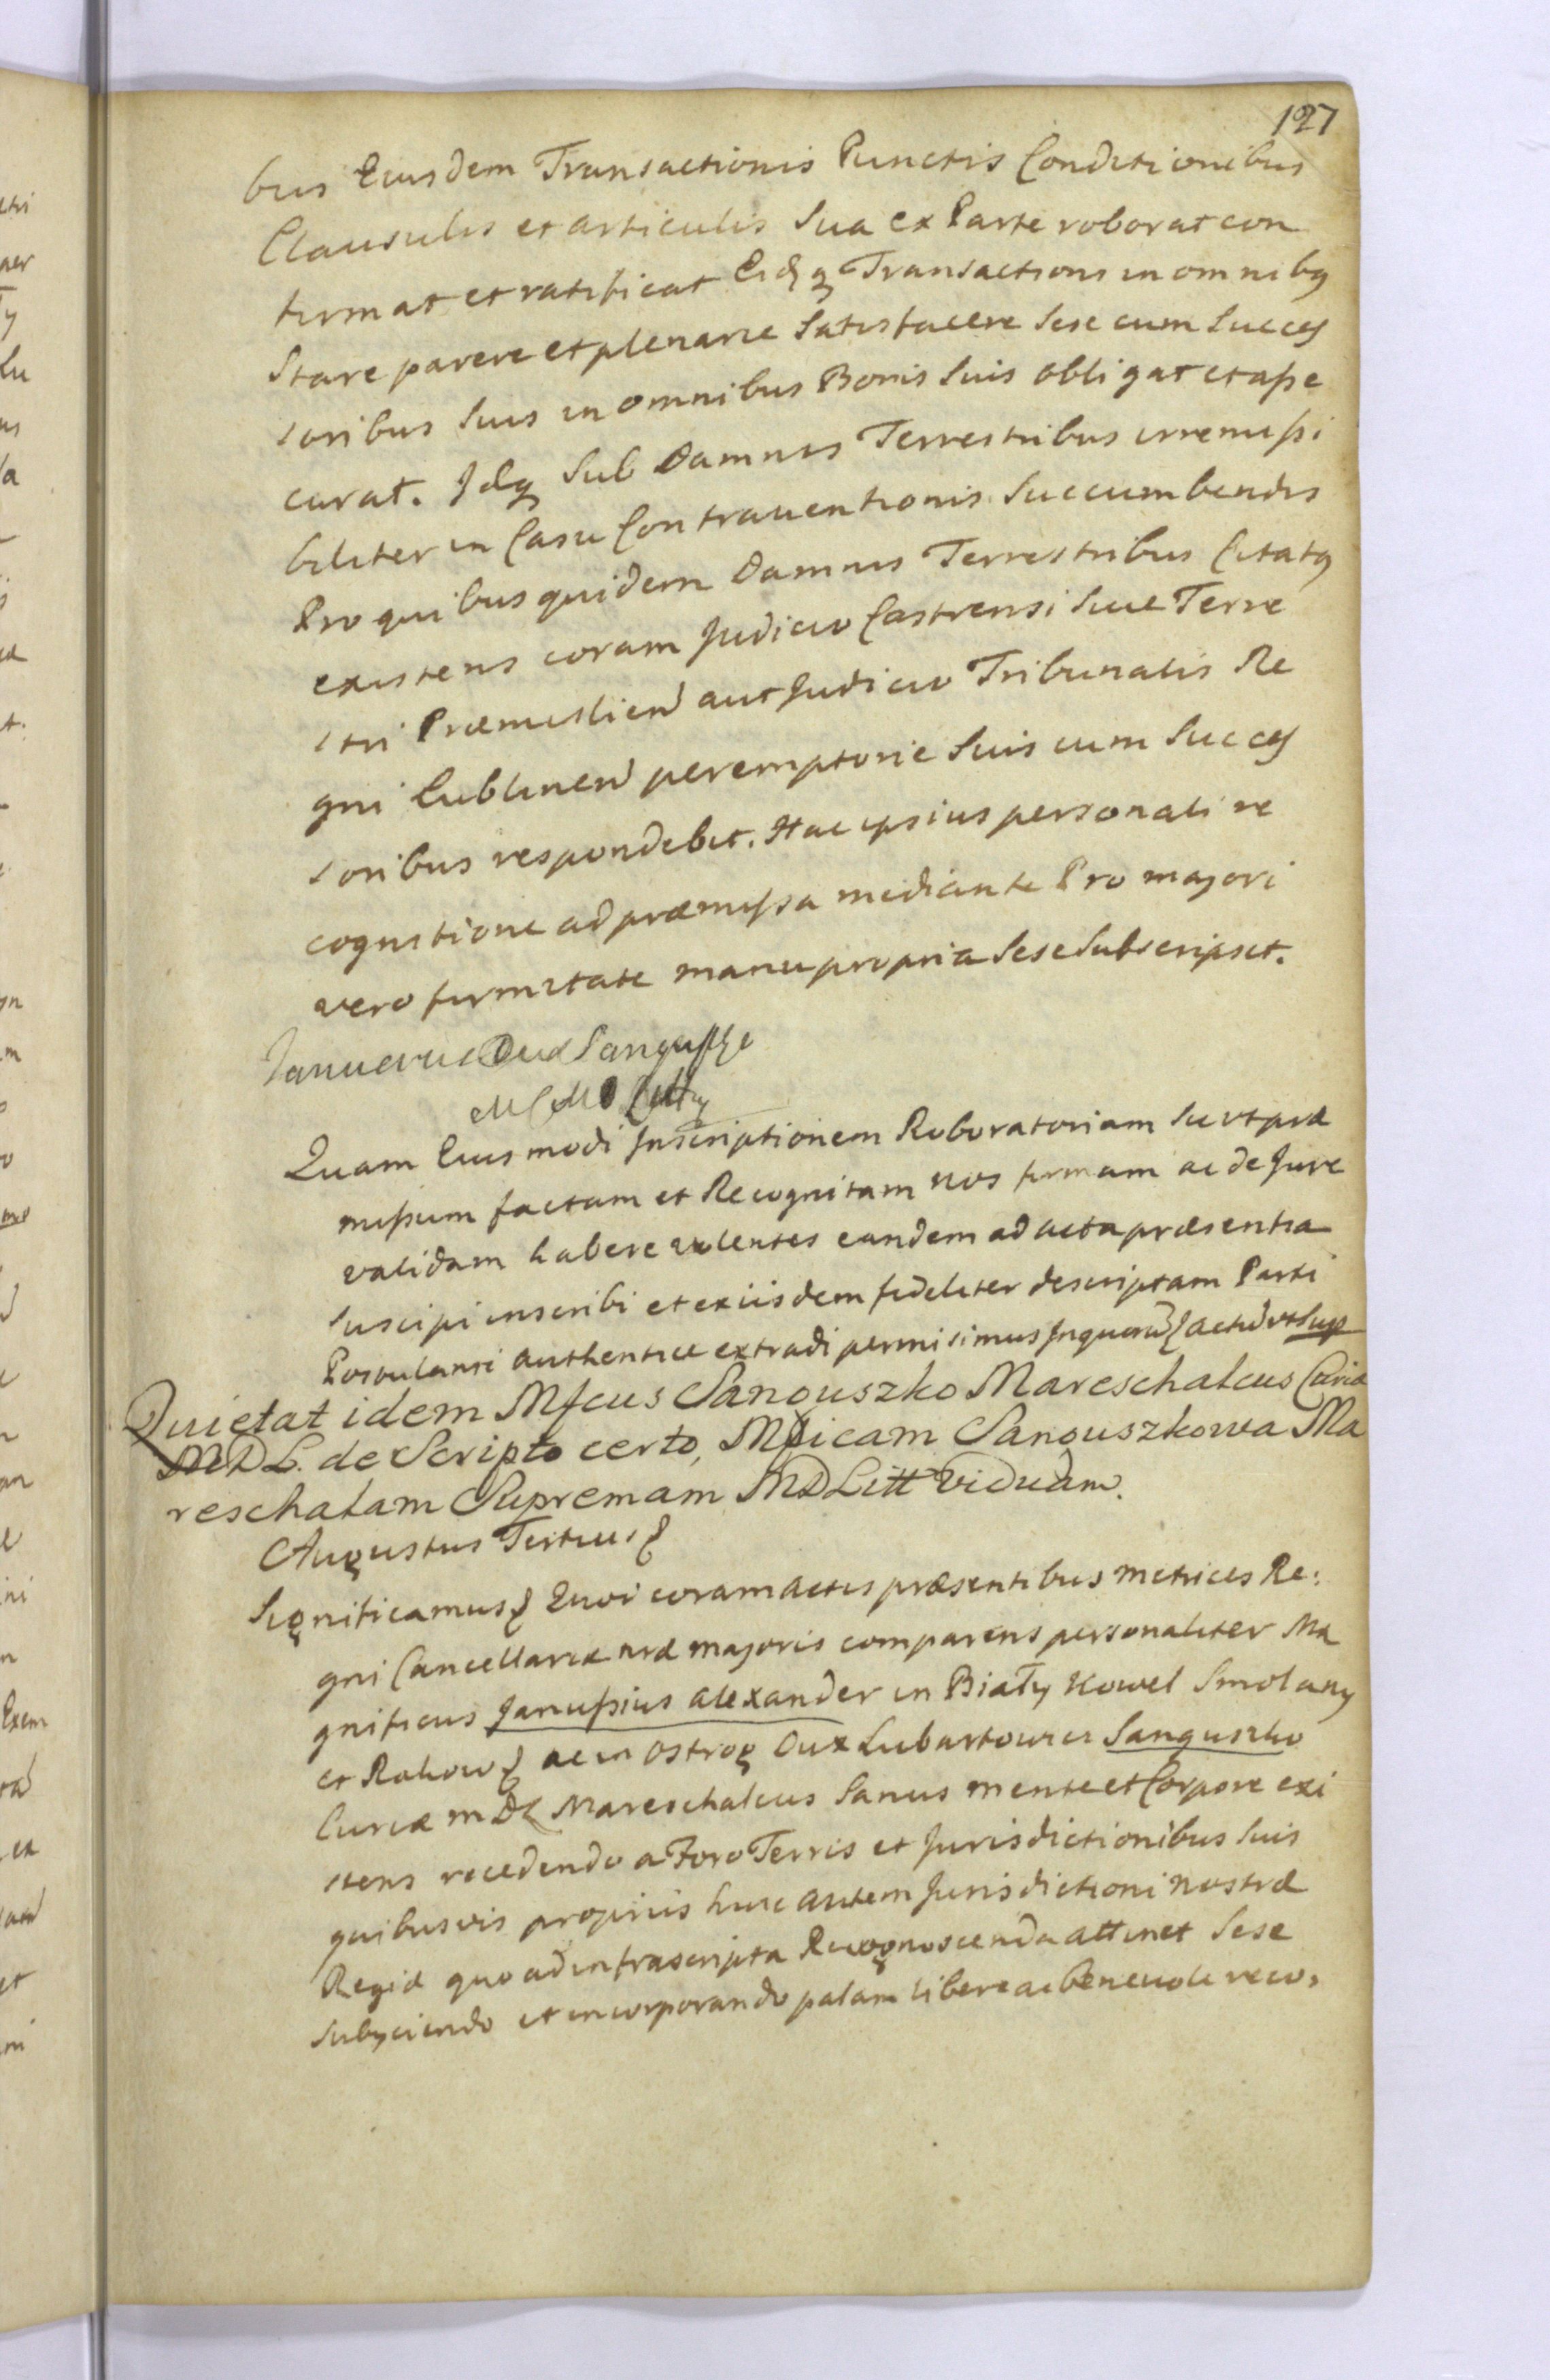 127
bus Eiusdem Transactionis Punctis Conditionibus
Clausulis et articulis Sua ex Parte roborat con
firmat et ratificat Eidq Transactioni in omnibq
Stare parere et plenarie Satisfacere Sese cum Succes
soribus Suis in omnibus Bonis Suis obligat et asse
curat. Idq Sub Damnis Terrestribus irremissi
biliter in Casu Contrauentionis Succumbendis
Pro quibus quidem Damnis Terrestribus Citatq
existens coram Judicio Castrensi Siue Terre
stri Præmislien aut Judicio Tribunalis Re
gni Lublinen peremptorie Suis cum Succes
soribus respondebit. Hac ipsius personali re
cognitione ad præmissa mediante Pro majori
vero firmitate manu propria Sese Subscripsit.
Dux Sanguszko
Quam Eiusmodi Inscriptionem Roboratoriam Sic ut præ
missum factam et Recognitam nos firmam ac de Jure
validam habere volentes eandem ad acta præsentia
Suscipi inscribi et ex iisdem fideliter descriptam Parti
Postulanti authentice extradi permisimus In quorũ actũ ut Sup
Quietat idem Mfcus Sanguszko Mareschalcus Curiæ
MDL. de Scripto certo, Mficam Sanguszkowa Ma
reschalam Supremam MDLitt Viduam.
Augustus Tertius
Significamus Quoi coram actis præsentibus metrices Re:
gni Cancellariæ nræ majoris comparens personaliter Ma
gnificus Janussius Alexander in Biały Kowel Smolany
et Rakow ac in Ostrog Dux Lubartowicz Sanguszko
Curiæ MDL Mareschalcus Sanus mente et Corpore exi
stens recedendo a Foro Terris et Jurisdictionibus Suis
quibusvis propriis huic autem Jurisdictioni nostræ
Regiæ quo ad infrascripta Recognoscenda attinet Sese
Subyciendo et incorporando palam libere ac beneuole reco: